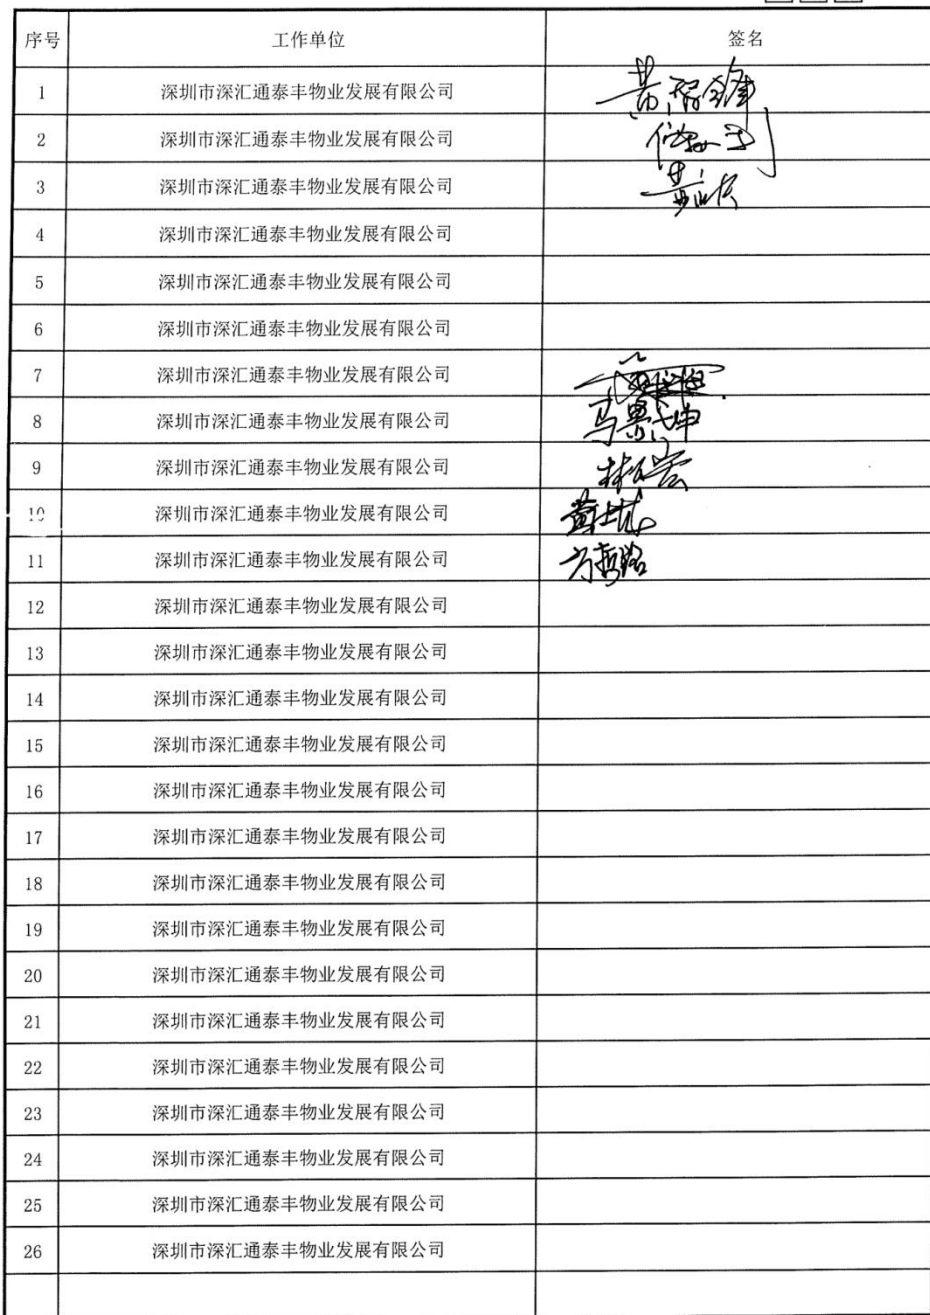 序号 工作单位 签名
1 深圳市深汇通泰丰物业发展有限公司
2 深圳市深汇通泰丰物业发展有限公司
3 深圳市深汇通泰丰物业发展有限公司
4 深圳市深汇通泰丰物业发展有限公司
5 深圳市深汇通泰丰物业发展有限公司
6 深圳市深汇通泰丰物业发展有限公司
7 深圳市深汇通泰丰物业发展有限公司
8 深圳市深汇通泰丰物业发展有限公司 马景坤
9 深圳市深汇通泰丰物业发展有限公司
10 深圳市深汇通泰丰物业发展有限公司
11 深圳市深汇通泰丰物业发展有限公司 方哲路
12 深圳市深汇通泰丰物业发展有限公司
13 深圳市深汇通泰丰物业发展有限公司
14 深圳市深汇通泰丰物业发展有限公司
15 深圳市深汇通泰丰物业发展有限公司
16 深圳市深汇通泰丰物业发展有限公司
17 深圳市深汇通泰丰物业发展有限公司
18 深圳市深汇通泰丰物业发展有限公司
19 深圳市深汇通泰丰物业发展有限公司
20 深圳市深汇通泰丰物业发展有限公司
21 深圳市深汇通泰丰物业发展有限公司
22 深圳市深汇通泰丰物业发展有限公司
23 深圳市深汇通泰丰物业发展有限公司
24 深圳市深汇通泰丰物业发展有限公司
25 深圳市深汇通泰丰物业发展有限公司
26 深圳市深汇通泰丰物业发展有限公司